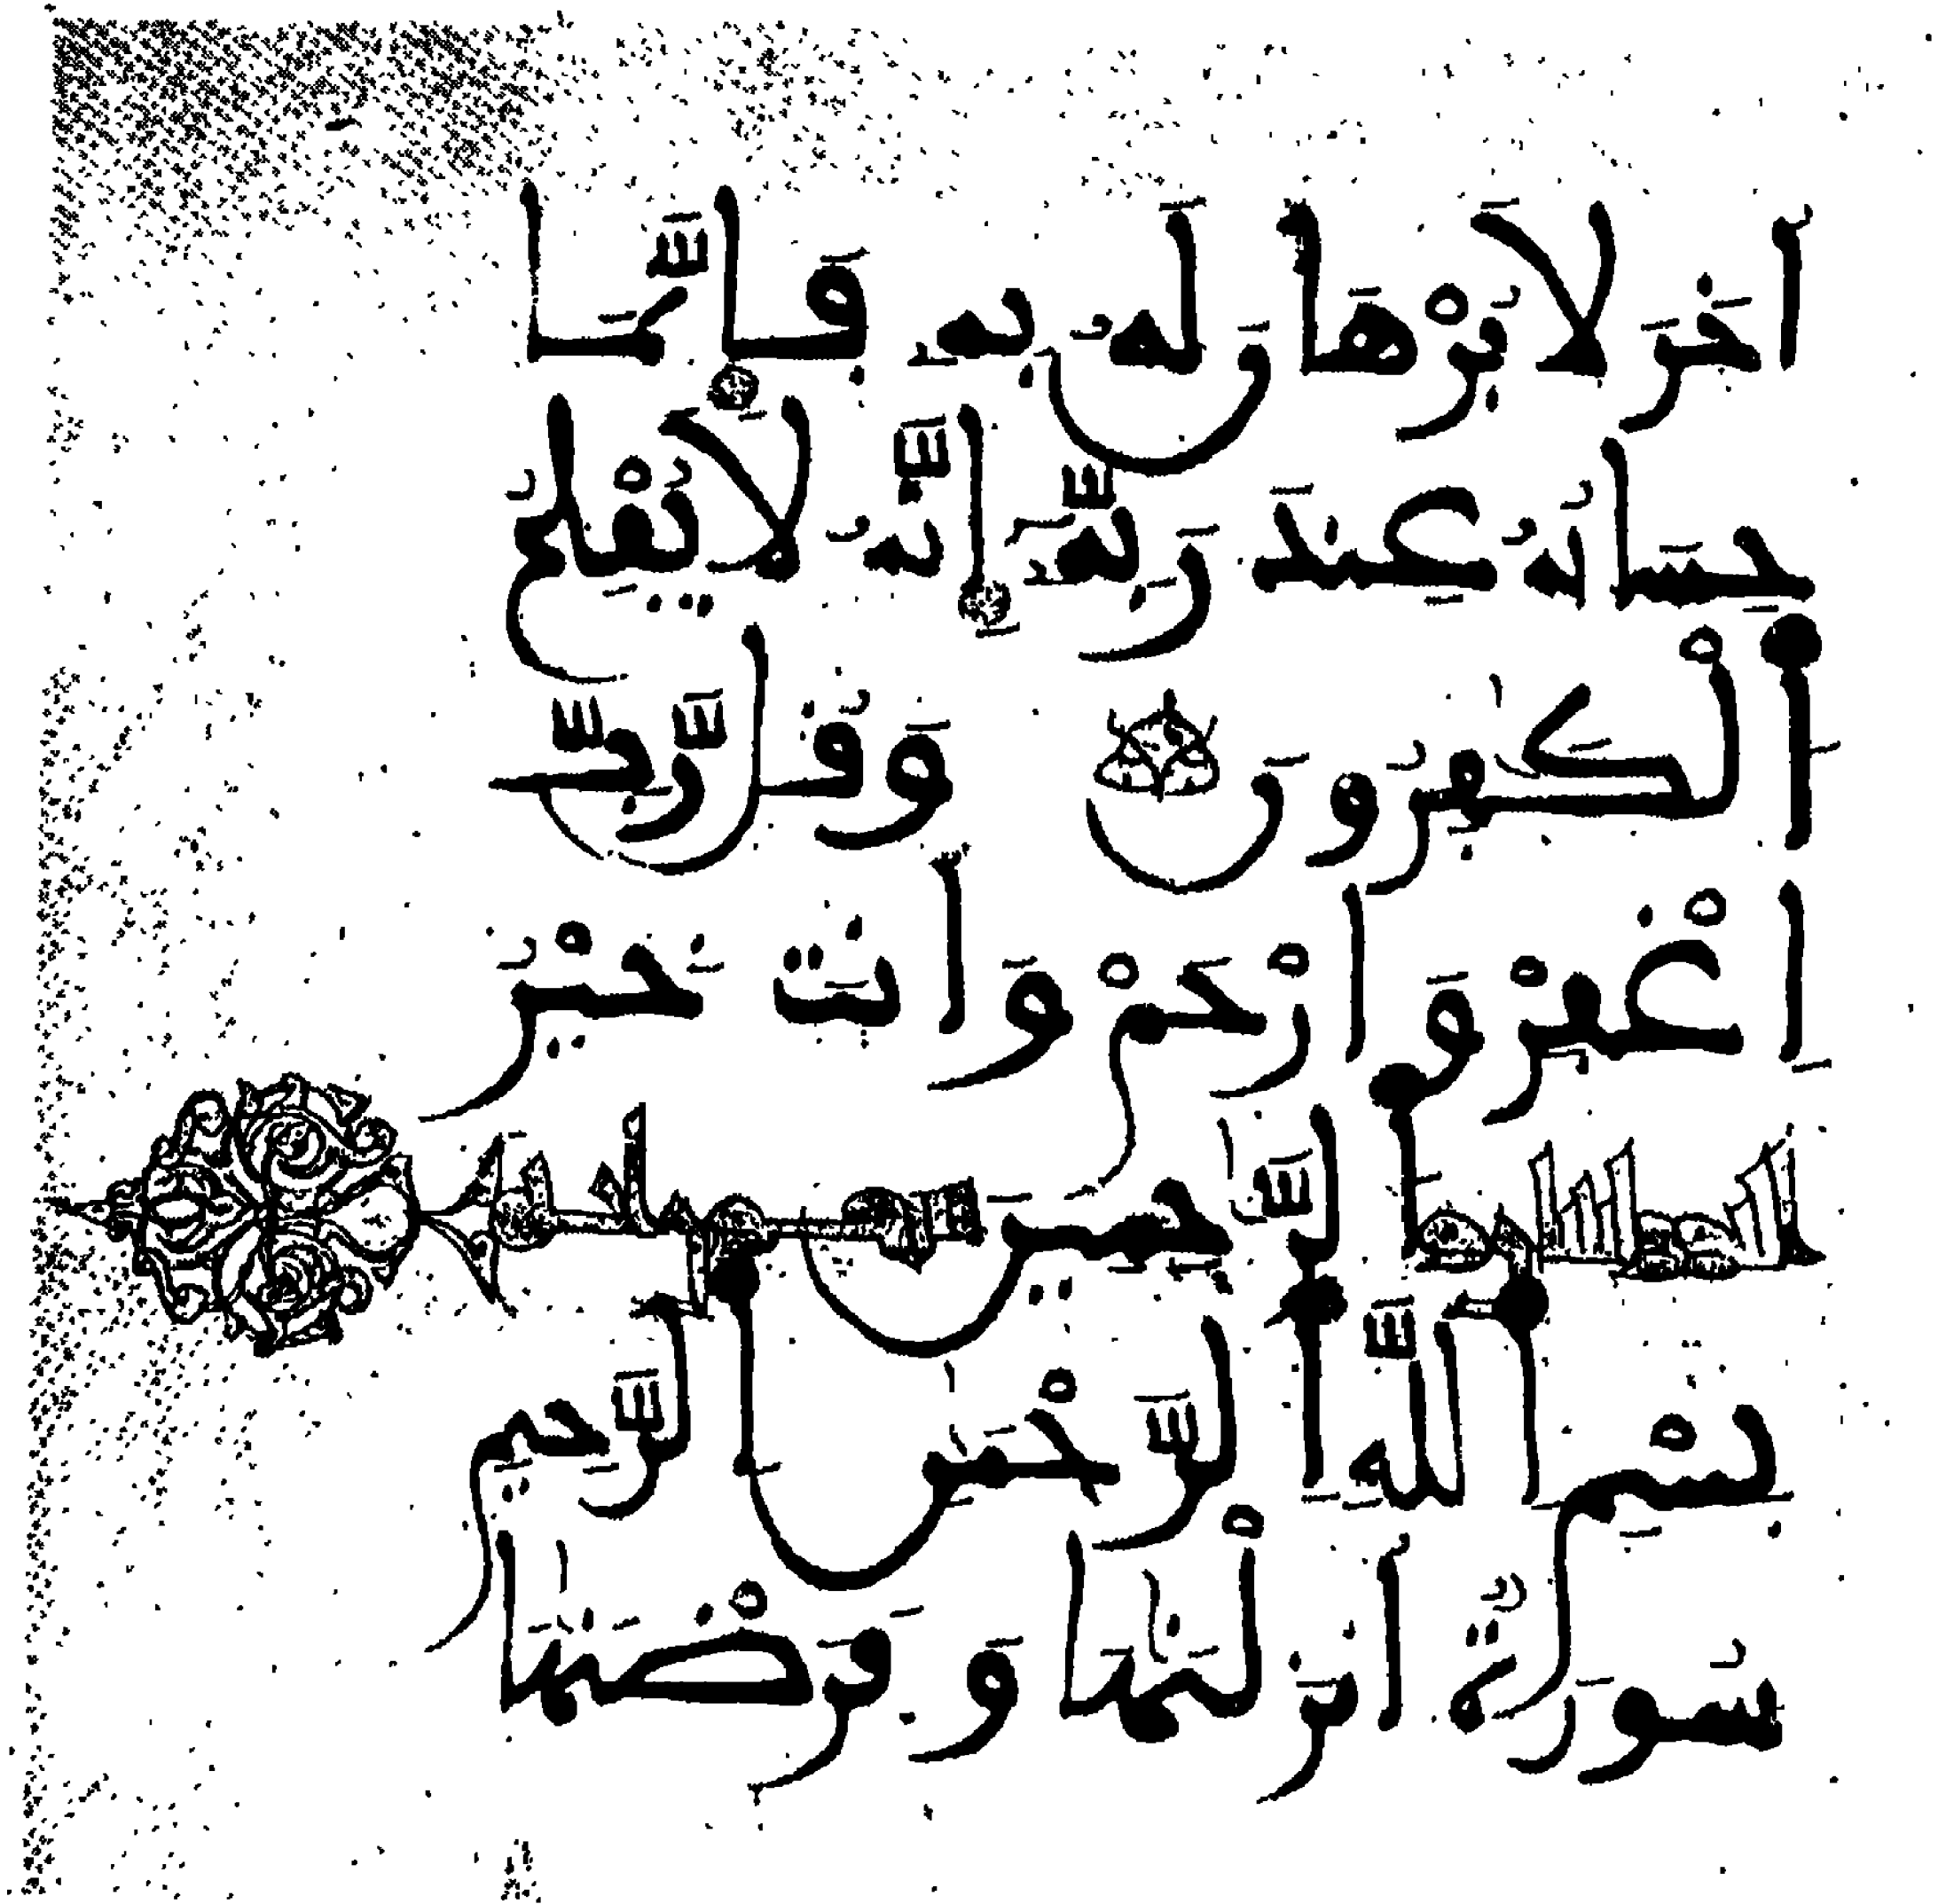 اَخَرَ لَا بُرْهَانَ لَهُۥ بِهِۦ فَإِنَّمَا
حِسَابُهُۥ عِندَ رَبِّهِۦٓ إِنَّهُۥ لَا يُفْلِحُ
اَ۬لْكَٰفِرُونَ وَقُل رَّبِّ
اِ۪غْفِرْ وَارْحَمْ وَأَنتَ خَيْرُ
اُ۬لرَّٰحِمِينَ
بِسْمِ اِ۬للَّهِ اِ۬لرَّحْمَٰنِ اِ۬لرَّحِيمِ
سُورَةٌ اَنزَلْنَٰهَا وَفَرَضْنَٰهَا